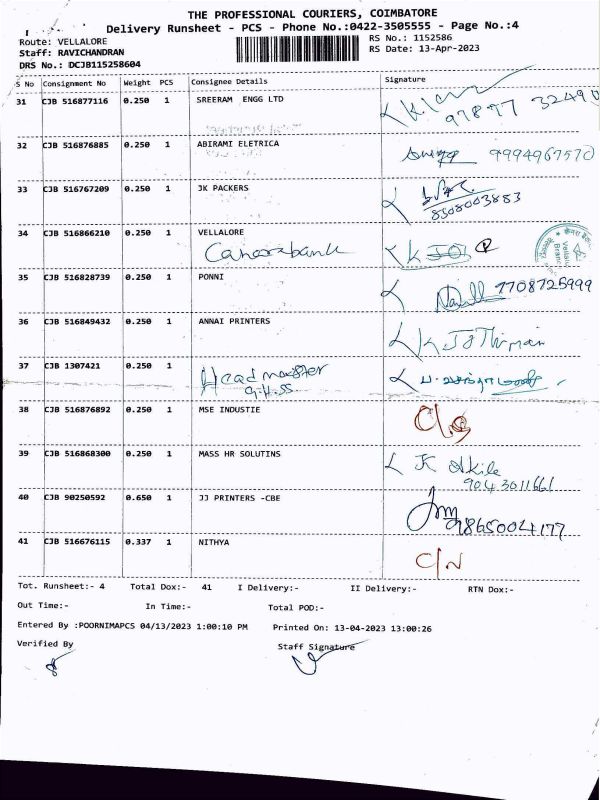 THE PROFESSIONAL COURIERS, COIMBATORE
Delivery Runsheet - PCS - Phone No.:0422-3505555 - Page No.:4
Route: VELLALORE
RS No.: 1152586
Staff: RAVICHANDRAN
RS Date: 13-Apr-2023
DRS No.: DCJB115258604
S No Consignment No Weight PCS Consignee Details Signature
31 CJB 516877116 0.250 1 SREERAM ENGG LTD
97877 32490
32 CJB 516876885 0.250 1 ABIRAMI ELETRICA
9994967570
33 CJB 516767209 0.250 1 JK PACKERS
8508003883
34 CJB 516866210 0.250 1 VELLALORE
Canarabank
35 CJB 516828739 0.250 1 PONNI
7708725999
36 CJB 516849432 0.250 1 ANNAI PRINTERS
37 CJB 1307421 0.250 1 Headmaster
G.H.SS.
38 CJB 516876892 0.250 1 MSE INDUSTIE
39 CJB 516868300 0.250 1 MASS HR SOLUTINS
9043011661
40 CJB 90250592 0.650 1 JJ PRINTERS -CBE
9865004177
41 CJB 516676115 0.337 1 NITHYA C/N
Tot. Runsheet:- 4 Total Dox:- 41 I Delivery:- II Delivery:- RTN Dox:-
Out Time:- In Time:- Total POD:-
Entered By :POORNIMAPCS 04/13/2023 1:00:10 PM Printed On: 13-04-2023 13:00:26
Verified By Staff Signature